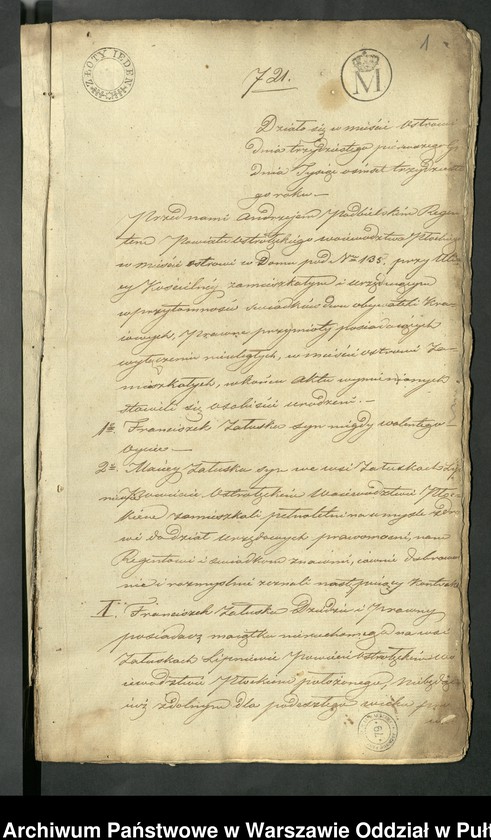 1
ZŁOTY IEDEN
721.
M
Działo się w mieście Ostrowi
dnia trzydziestego pierwszego
dnia Tysiąc ośmset trzydziest
go roku. —
Przed nami Andrzejem Podbielskim Regen
tem Powiatu Ostrołęckiego Woiewództwa Płockiego
w mieście Ostrowi w Domu pod Nrm 135. przy Uli
cy Kościelney zamieszkałym i urzęduiącym
w przytomności świadków dwu obywateli Kra
iowych, Prawne przymioty posiadaiących
wyłączeniu nieuległych, w mieście Ostrowi Za-
mieszkałych, w końcu Aktu wymienionych
stawili się osobiście urodzeni. —
1o Franciszek Załuska syn niegdy Walentego
2o Maciey Załuska syn we wsi Załuskach Lip
niewie Powiecie Ostrołęckim Woiewództwie Płoc
kiem zamieszkali pełnoletni na umyśle zdro
wi do dział urzędowych prawomocni, nam
Regentowi i świadkom znaiomi, iawnie dobrowol
nie i rozmyślnie zeznali następuiący Kontrakt
I. Franciszek Załuska Dziedzic i Prawny
posiadacz maiątku nieruchomego na wsi
Załuskach Lipniewie Powiecie Ostrołęckim Wo
iewództwie Płockiem położonego, Niebędąc
iuż zdolnym dla podeszłego wieku
Archiwum Państwowe w Warszawie Oddział w Puł